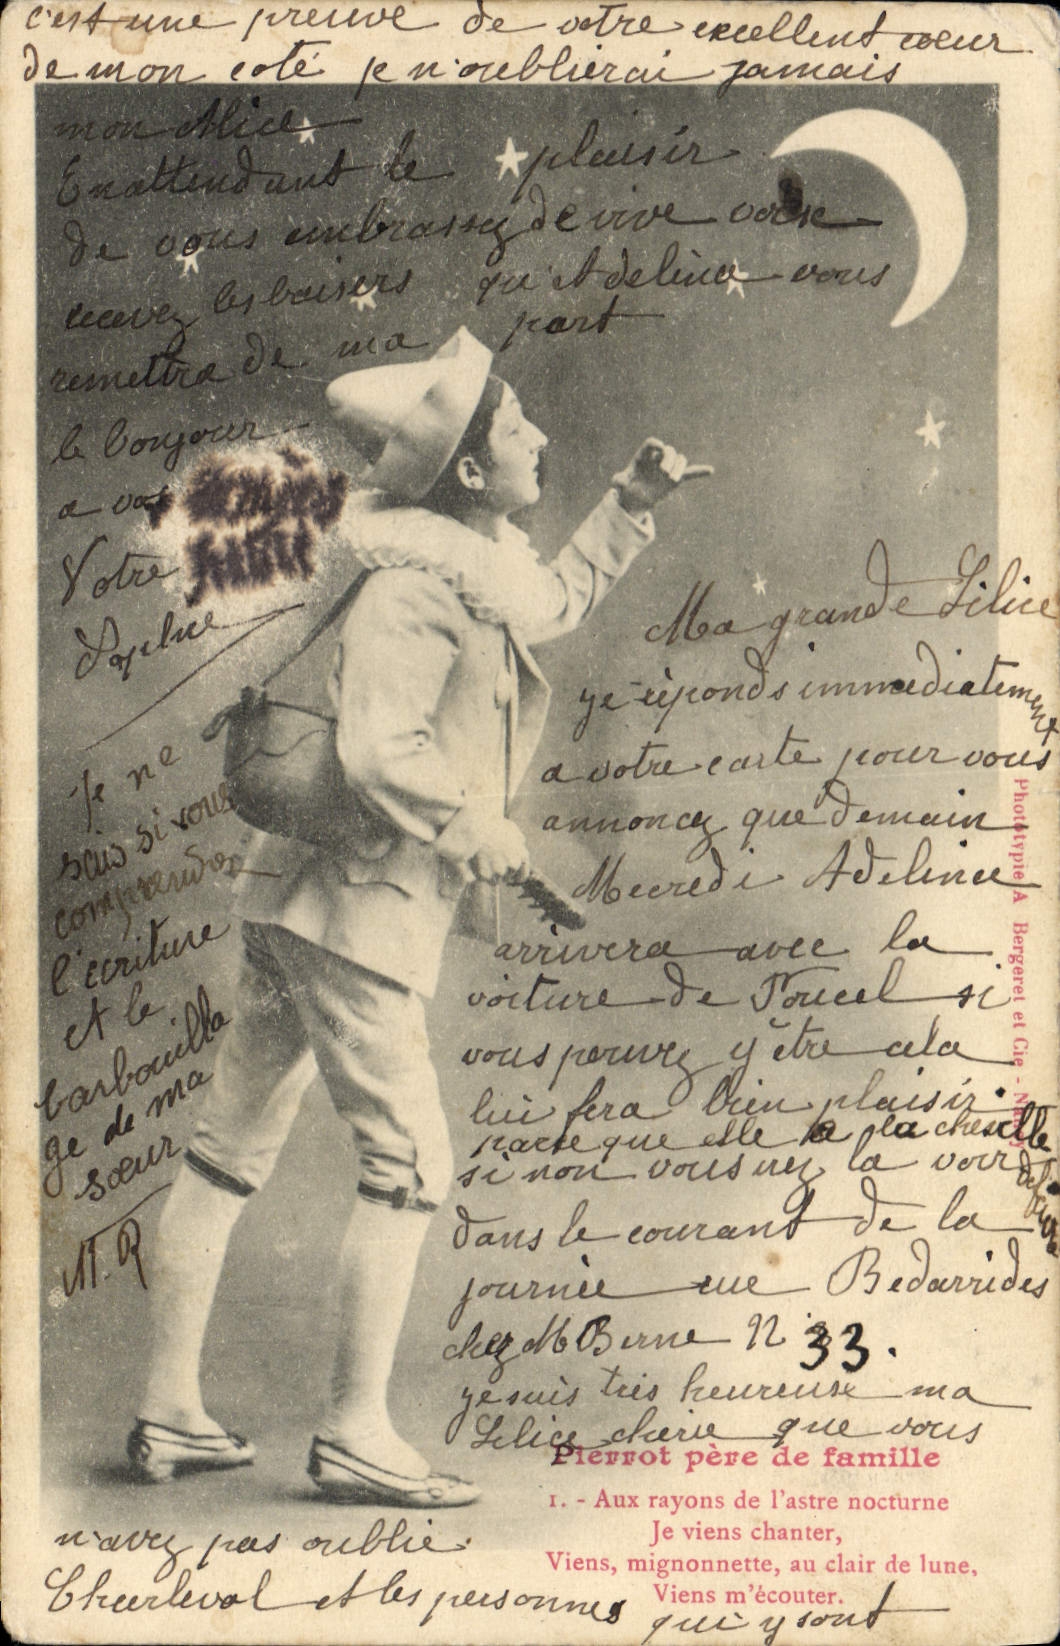 Ma grande Lilice
je réponds immediatement
a votre carte pour vous
annoncez que demain
Mecredi Adeline
arrivera avec la
voiture de Foucel si
vous pouvez y être cela
lui fera bien plaisir
parce que elle a la
si non vous irez la voir
dans le courant de la
journée rue Bedarrides
chez M Berne N 33.
je suis tres heureuse ma
Lilice cherie que vous
n'avez pas oublié
Charleval et les personnes qui y sont
c'est une preuve de votre excellent cœur
de mon coté je n'oublierai jamais
mon Alice
En attendant le plaisir
de vous embrassez de vive voix
recevez les baisers qu'Adeline vous
remettra de ma part
le bonjour
a vos
Votre
Sophie
Je ne
sais si vous
comprendez
l'ecriture
et le
barbouilla
ge de ma
sœur
M. R
Pierrot père de famille
1. - Aux rayons de l'astre nocturne
Je viens chanter,
Viens, mignonnette, au clair de lune,
Viens m'écouter.
Phototypie A Bergeret et Cie - Nancy